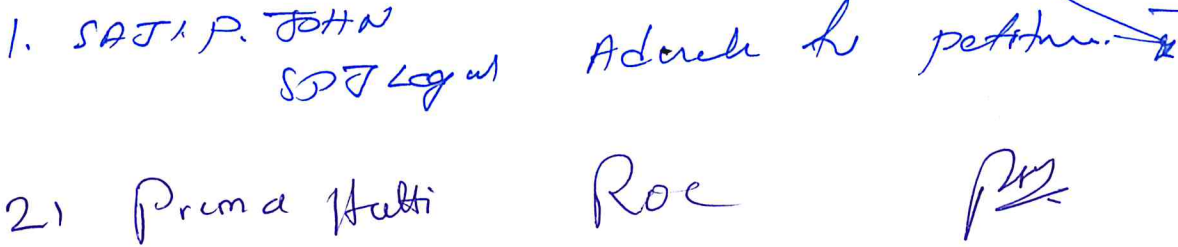 1. SAJI P. JOHN
SPJ Legal Advocate for petitioner.
2) Prema Hatti Roc